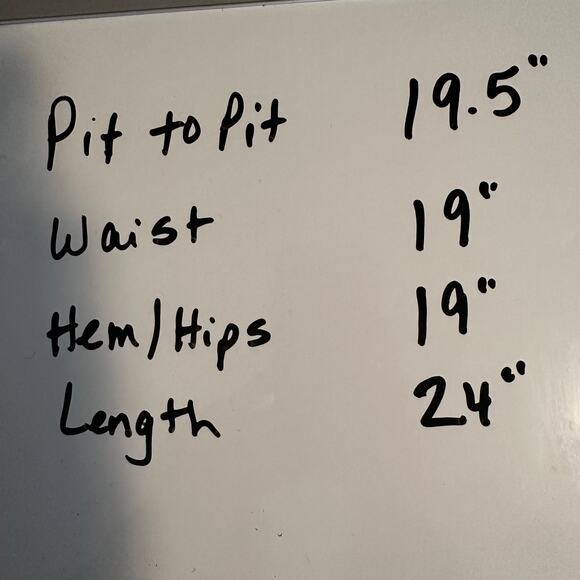 Pit to Pit 19.5"
Waist 19"
Hem/Hips 19"
Length 24"